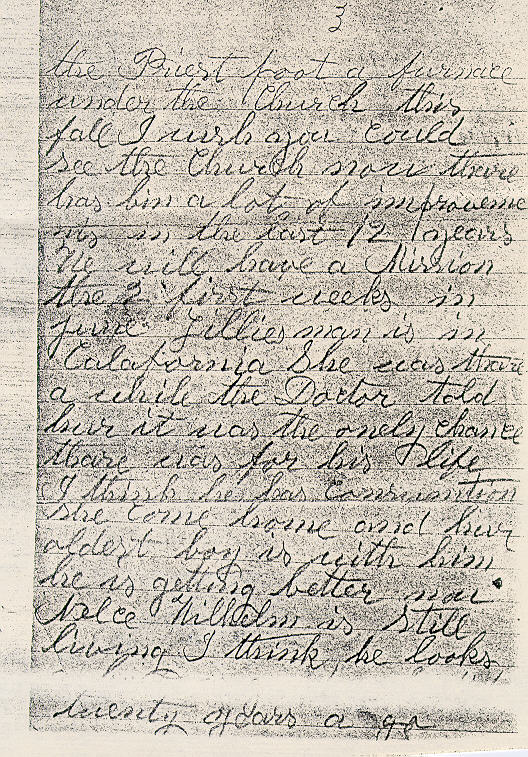 3
the Priest poot a furnace
under the Church this
fall I wish you could
see the Church now there
has bin a lot of improveme
nts in the last 12 years
We will have a Mission
the 2 first weeks in
June Tillies man is in
Calafornia She was there
a while the Doctor told
hur it was the onely chance
thare was for his life
I think he has Consumtion
she come home and hur
oldest boy is with him
he is getting better now
Wilhelm is still
living I think he looks
twenty years a go